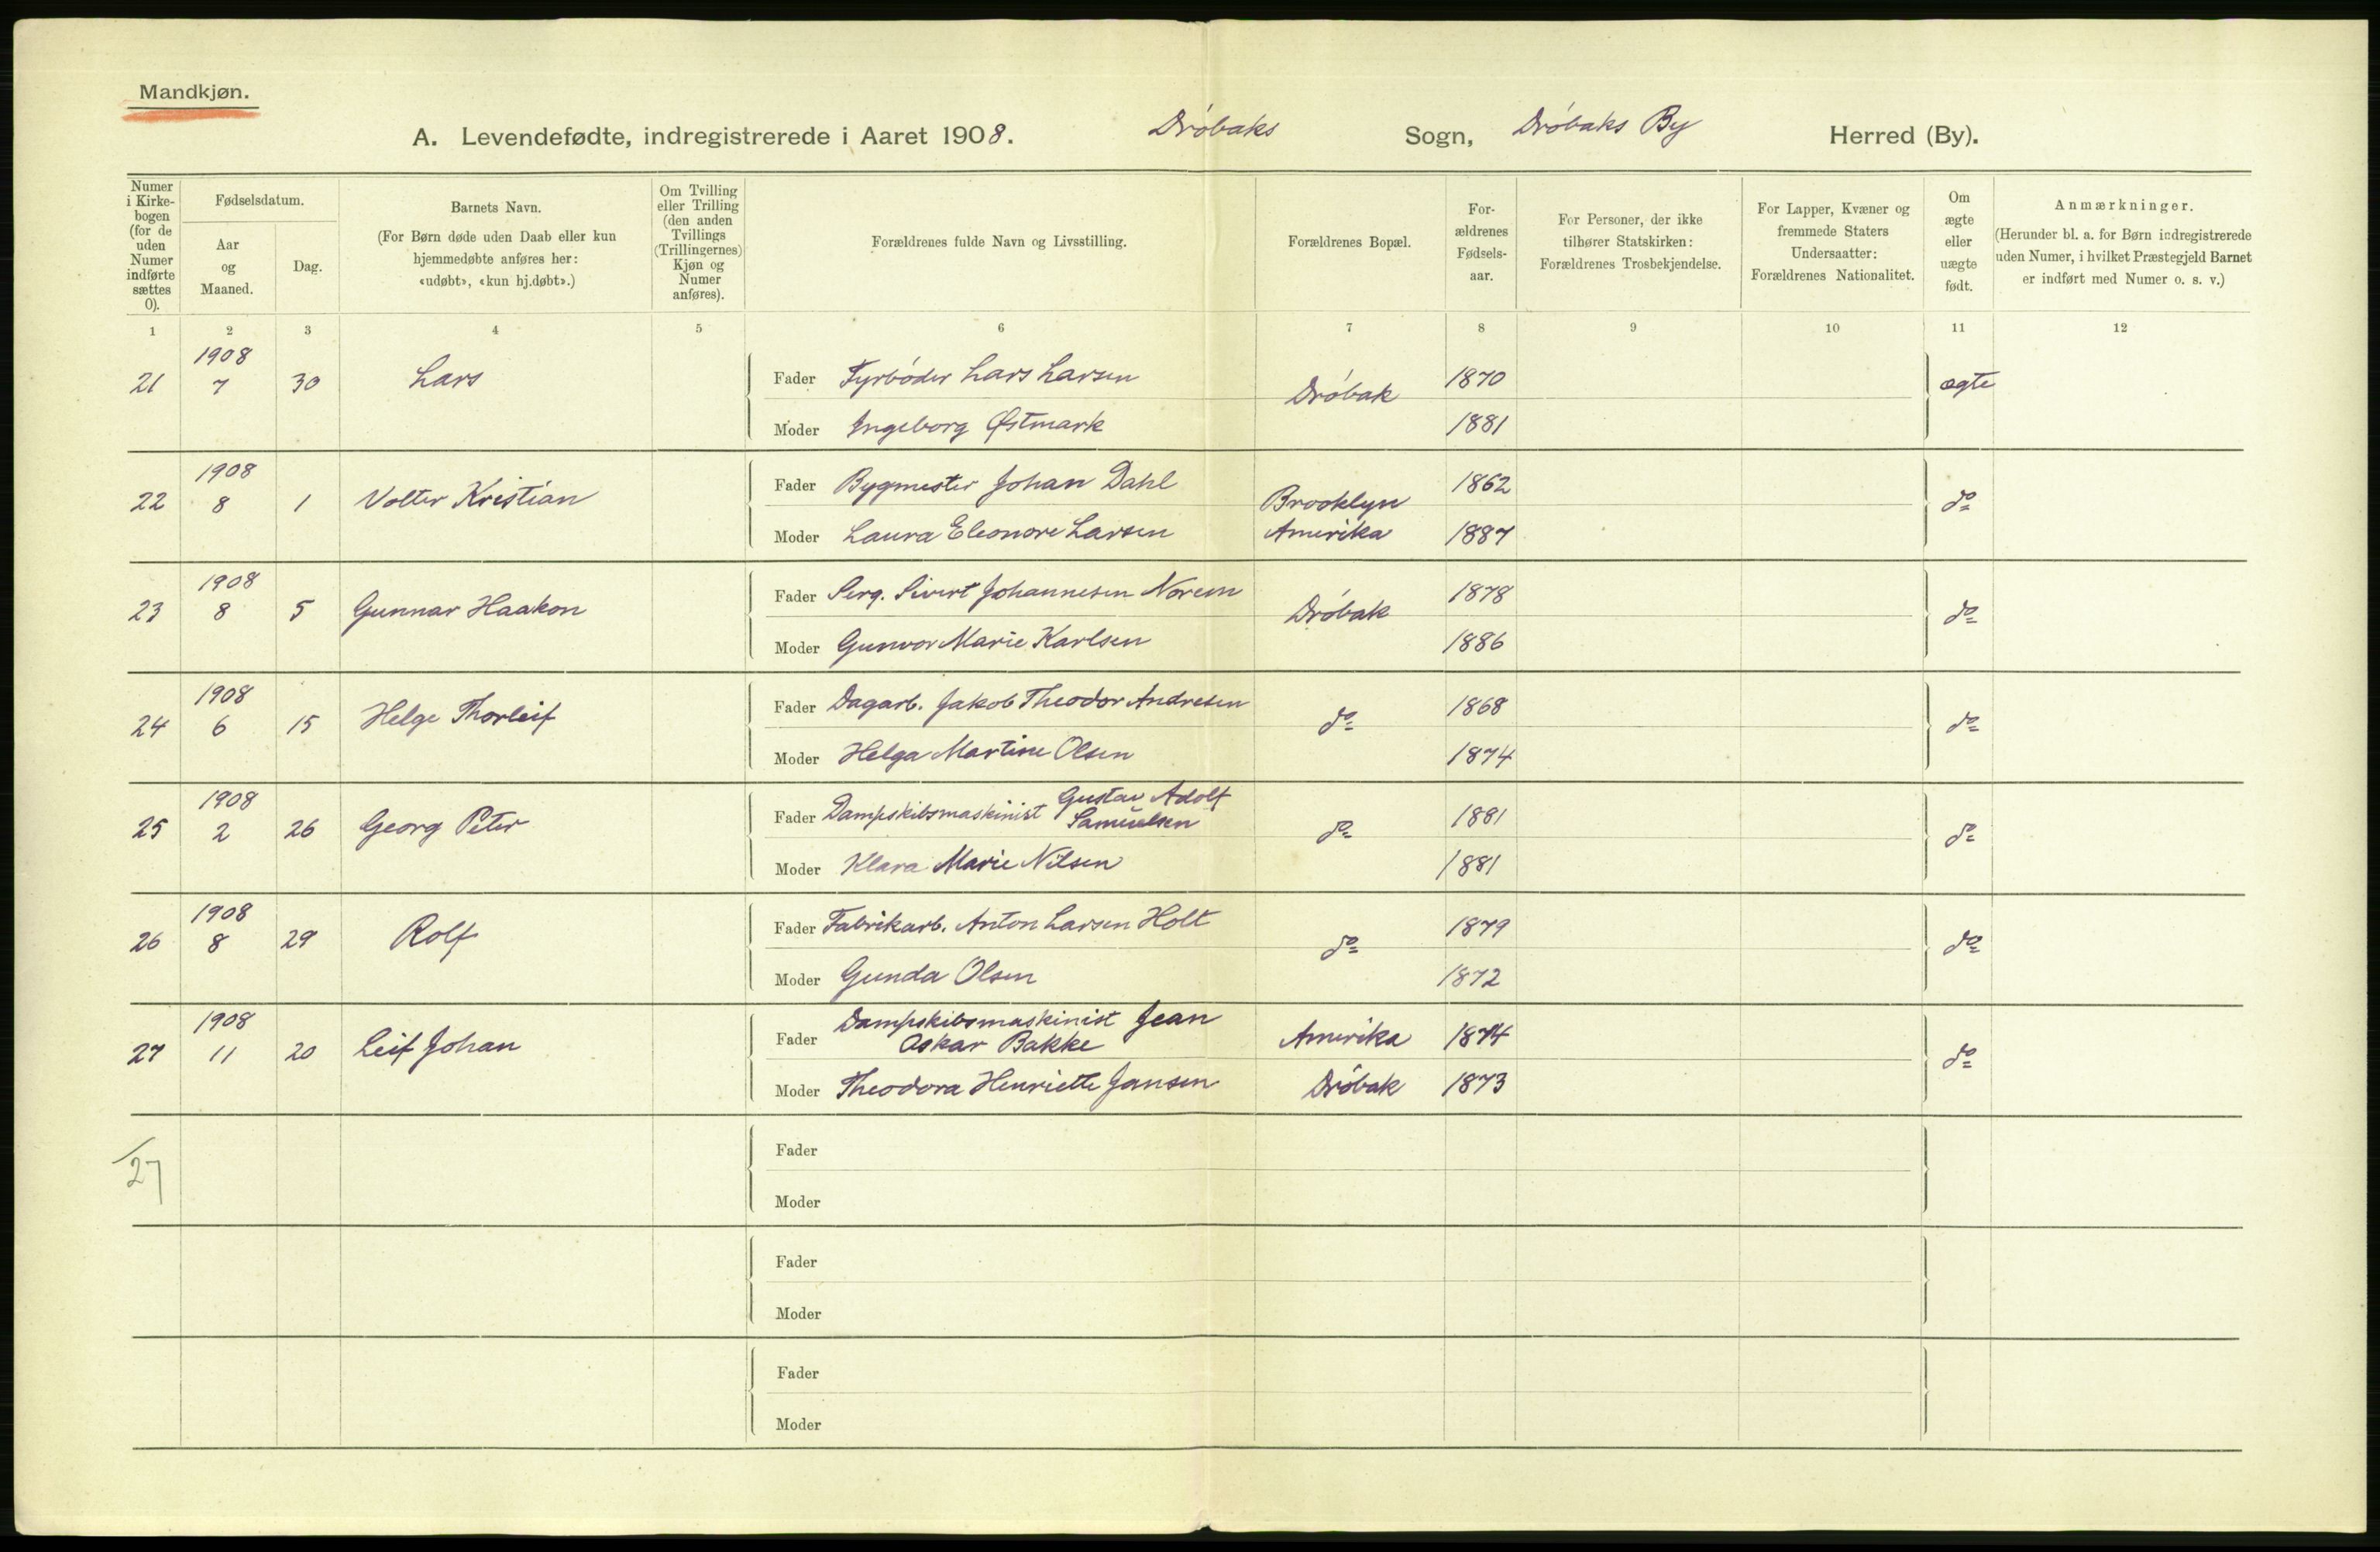 Mandkjøn.
A. Levendefødte, indregistrerede i Aaret 1908. Drøbaks Sogn, Drøbaks By Herred (By).
Numer i Kirke-bogen (for de uden Numer indførte sættes 0).
Fødselsdatum.
Aar og Maaned.
Dag.
Barnets Navn.
(For Børn døde uden Daab eller kun hjemmedøbte anføres her: «udøbt», «kun hj.døbt».)
Om Tvilling eller Trilling (den anden Tvillings (Trillingernes) Kjøn og Numer anføres).
Forældrenes fulde Navn og Livsstilling.
Forældrenes Bopæl.
For-ældrenes Fødsels-aar.
For Personer, der ikke tilhører Statskirken: Forældrenes Trosbekjendelse.
For Lapper, Kvæner og fremmede Staters Undersaatter: Forældrenes Nationalitet.
Om ægte eller uægte født.
Anmærkninger.
(Herunder bl. a. for Børn indregistrerede uden Numer, i hvilket Præstegjeld Barnet er indført med Numer o. s. v.)
1 2 3 4 5 6 7 8 9 10 11 12
1908
21 7 30 Lars Fader Fyrbøder Lars Larsen Drøbak 1870 ægte
Moder Ingeborg Østmark 1881
1908
22 8 1 Volter Kristian Fader Bygmester Johan Dahl Brooklyn 1862 do
Moder Laura Eleonore Larsen Amerika 1887
1908
23 8 5 Gunnar Haakon Fader Serg. Sivert Johannesen Norem Drøbak 1878 do
Moder Gunvor Marie Karlsen 1886
1908
24 6 15 Helge Thorleif Fader Dagarb. Jakob Theodor Andresen do 1868 do
Moder Helga Martine Olsen 1874
1908
25 2 26 Georg Peter Fader Dampskibsmaskinist Gustav Adolf Samuelsen do 1881 do
Moder Klara Marie Nilsen 1881
1908
26 8 29 Rolf Fader Fabrikarb. Anton Larsen Holt do 1879 do
Moder Gunda Olsen 1872
1908
27 11 20 Leif Johan Fader Dampskibsmaskinist Jean Oskar Bakke Amerika 1874 do
Moder Theodora Henriette Jansen Drøbak 1873
27
Fader
Moder
Fader
Moder
Fader
Moder